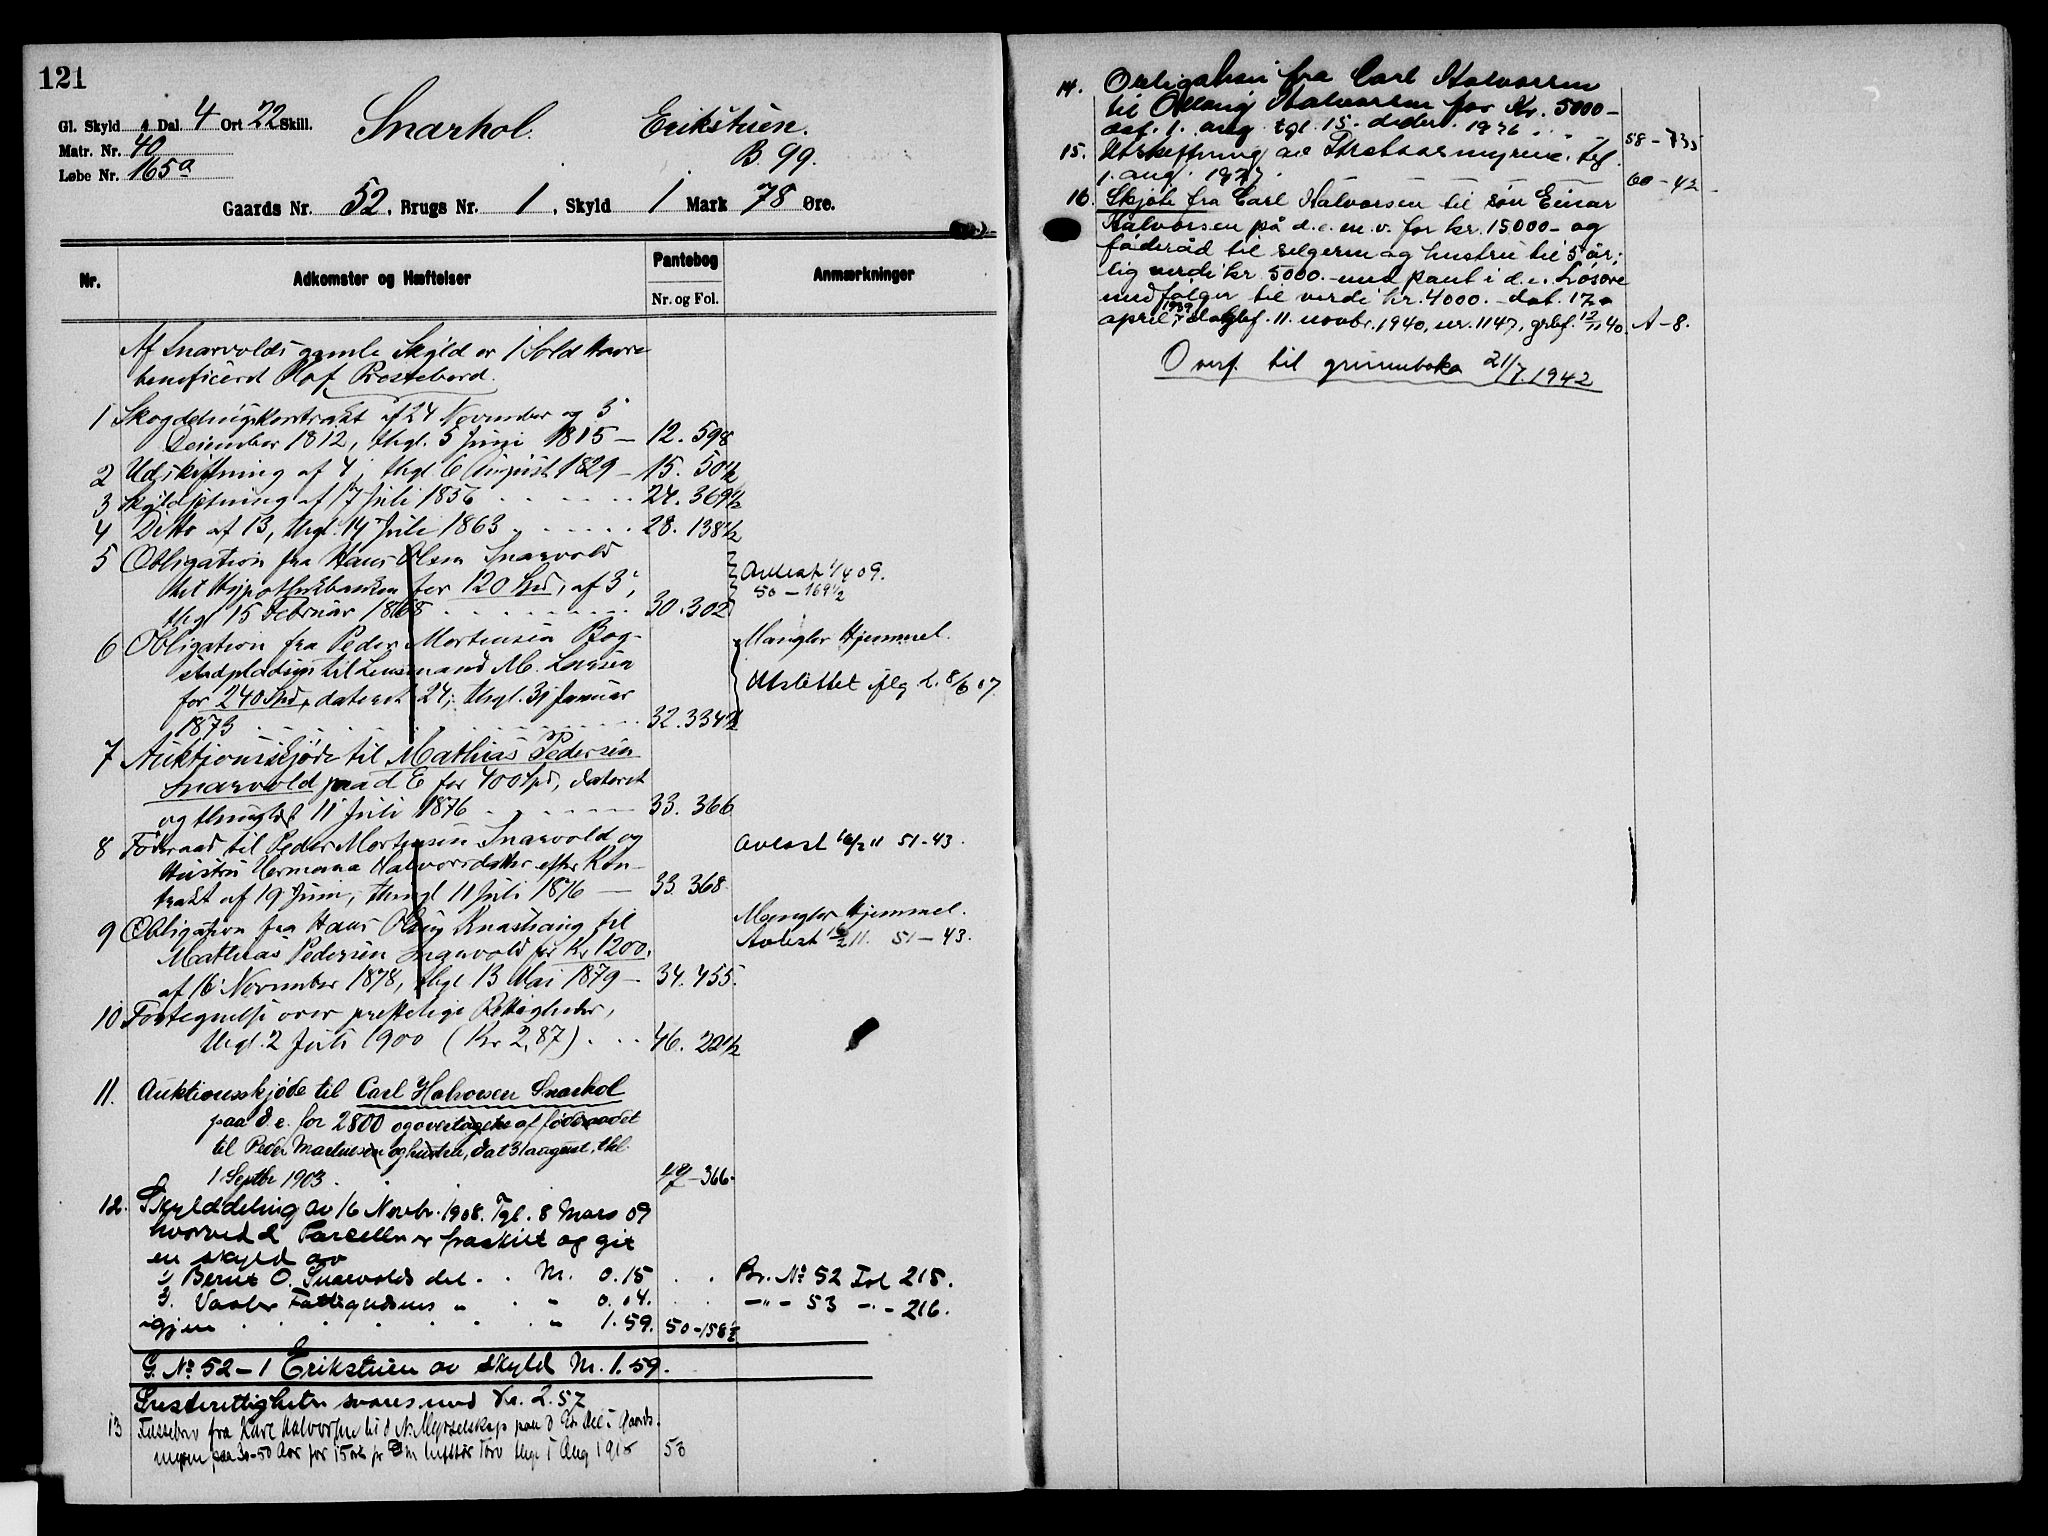 121
Gl. Skyld 4 Dal. 4 Ort 22 Skill.
Snarhol. Erikstuen.
Matr. Nr. 40
B. 99.
Løbe Nr. 165a
Gaards Nr. 52, Brugs Nr. 1, Skyld 1 Mark 78 Øre.
Nr. Adkomster og Hæftelser Pantebog Anmærkninger
Nr. og Fol.
Af Snarvolds gamle Skyld er 1 Sold Havre
beneficeret Olaf Prestebord.
1 Skogdelingskontrakt af 24 November og 3
December 1812, thgl. 5 Juni 1815 — 12. 598
2 Udskiftning af 4, thgl. 6 August 1829 — 15. 50½
3 Skyldsetning af 17 Juli 1856 24. 369½
4 Ditto af 13, thgl. 14 Juli 1863 28. 138½
5 Obligation fra Hans Olsen Snarvold
til Hypothekbanken for 120 Spd, af 3,
thgl 15 Februar 1868 30. 302
Avlest 1/4 09.
50 – 169½
6 Obligation fra Peder Mortensen Bog-
stadpladsen til Lensmand M. Larsen
for 240 Spd, dateret 24, thgl. 31 Januar
1873 32. 334½
Mangler Hjemmel.
Utslettet iflg L. 8/6 07.
7 Auktionsskjøde til Mathias Pedersen
Snarvold paa d E for 400 Spd, dateret
og thinglæst 11 Juli 1876 33. 366
8 Føderaad til Peder Mortensen Snarvold og
Hustru Hermana Halvorsdatter efter Kon-
trakt af 19 Juni, thingl 11 Juli 1876 — 33. 368.
Avlest 16/2 11 51-43.
9 Obligation fra Hans Olsen Knashaug til
Mathias Pedersen Snarvold for Kr 1200.
af 16 November 1878, thgl 13 Mai 1879 — 34. 455.
Mangler Hjemmel.
Avlest 16/2 11. 51-43.
10 Fortegnelse over prestelige Rettigheder,
thgl. 2 Juli 1900 (Kr 2,87) 46. 221½
11. Auktionsskjøde til Carl Halvorsen Snarhol
paa d. e. for 2800 og overtagelse af føderaadet
til Peder Martinsen og hustru, dat 31 august, thl.
1 Septbr 1903. 47-366.
12. Skylddeling av 16 Novbr. 1908. Tgl. 8 Mars 09
hvorved 2 Parceller er fraskilt og git
en skyld av
1) Bernt O. Snarvolds del M. 0.15 Br. No 52 Fol 215.
2. Vaaler Fattigvesens " - 0.04. —"— 53 —"— 216.
igjen - 1.59. 50-158½
G. No 52-1 Erikstuen av skyld M. 1.59.
Presterettigheter svares med Kr. 2.57
13 Fæstebrev fra Karl Halvorsen til d N. Myrselskap paa d Es del i Gaards-
myren paa 30-50 Aar for 15 øre pr m lufttør Torv thgl 1 Aug 1916 53
14. Obligation fra Carl Halvorsen
til Halvorsen for Kr. 5000 –
dat. 1. aug. tgl. 15. 1936 58 – 735
15. Utskiftning av tgl.
1. aug. 1937. 60 – 42 –
16. Skjøte fra Carl Halvorsen til søn Einar
Halvorsen på d.e. m.v. for kr. 15000 – og
føderåd til selgeren og hustru til 5 år-
lig verdi kr. 5000. – med pant i d.e. Løsøre
medfølger til verdi kr. 4000. – dat. 17.
april 1939, dagbf. 11. novbr. 1940, nr. 1147, grbf. 12/11 40. A-8.
Overf. til grunnboka 21/7. 1942